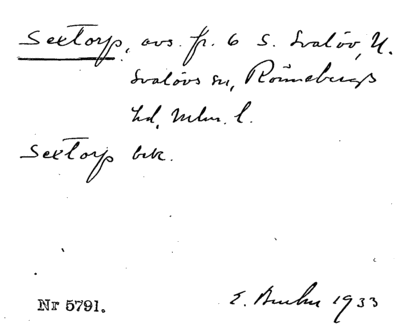 Sextorp, avs. fr. 6 S. Svalöv, N.
Svalövs sn, Rönnebergs
hd, Mlm. l.
Sextorp bek.
Nr 5791.
E. 1933